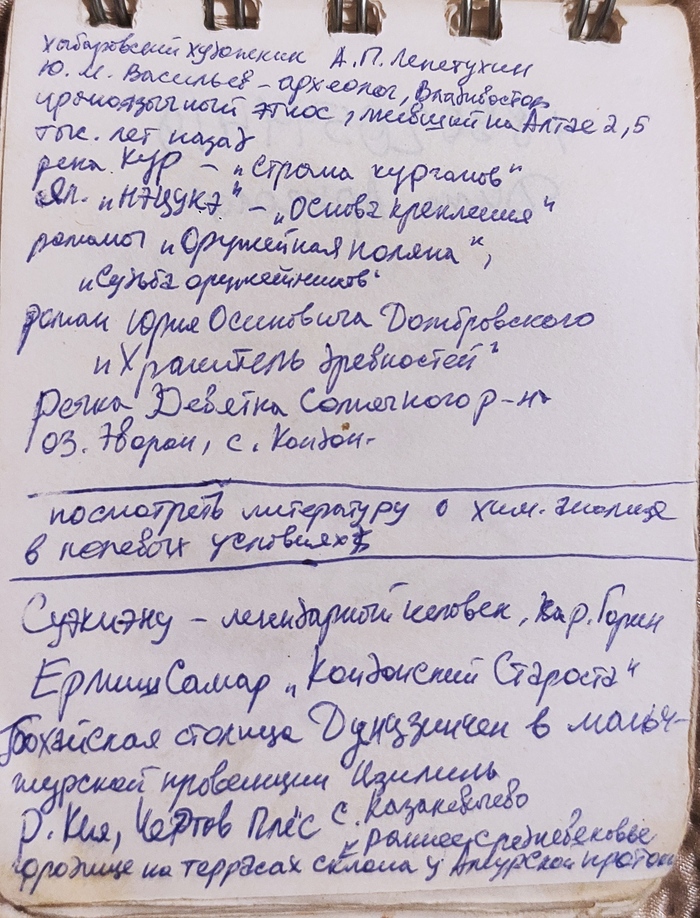 хабаровский художник А.П. Лепетухин
Ю.М. Васильев – археолог, Владивосток
ираноязычный этнос, живший на Алтае 2,5
тыс. лет назад
река Кур – „Страна курганов"
яп. „Нэцукэ" – „Основа крепления"
романы „Оружейная поляна",
„Судьба оружейников"
роман Юрия Осиповича Домбровского
„Хранитель древностей"
Речка Девятка Солнечного р-на
оз. Эворон, с. Кондон.
посмотреть литературу о хим. анализе
в полевых условиях
Сункиэну – легендарный человек, на р. Горин
Ермиш Самар „Кондонский Староста"
Бохайская столица Дунцзинчен в мань-
журской провинции Цзилинь
р. Кия, Чёртов Плёс с. Казакевичево
раннее средневековье
на террасах склона у Амурской протоки